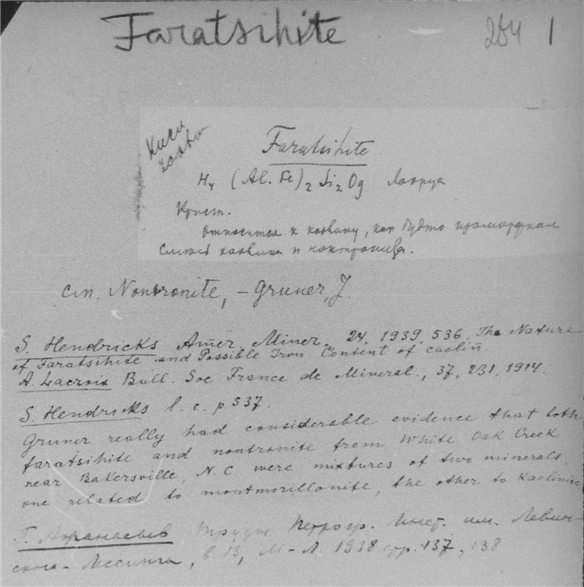 Faratsihite 264 1
Faratsihite
H4 (Al. Fe)2 Si2 O9
Крист.
относится к каолину, как будто изоморфная
смесь каолина и нонтронита.
см. Nontronite, - Gruner, J.
S. Hendricks Amer. Miner. 24, 1939, 536. The Nature
of Faratsihite and Possible Iron Content of caolin
A. Lacroix Bull. Soc France de Mineral., 37, 231, 1914.
S. Hendricks l. c. p 537.
Gruner really had considerable evidence that both
faratsihite and nontronite from White Oak Creek
near Bakersville, N.C. were mixtures of two minerals,
one related to montmorillonite, the other to kaolinite
Г. Афанасьев Труды Петрогр. Инст. им. Левин-
сона-Лессинга, в 13, М-Л. 1938 стр. 137, 138